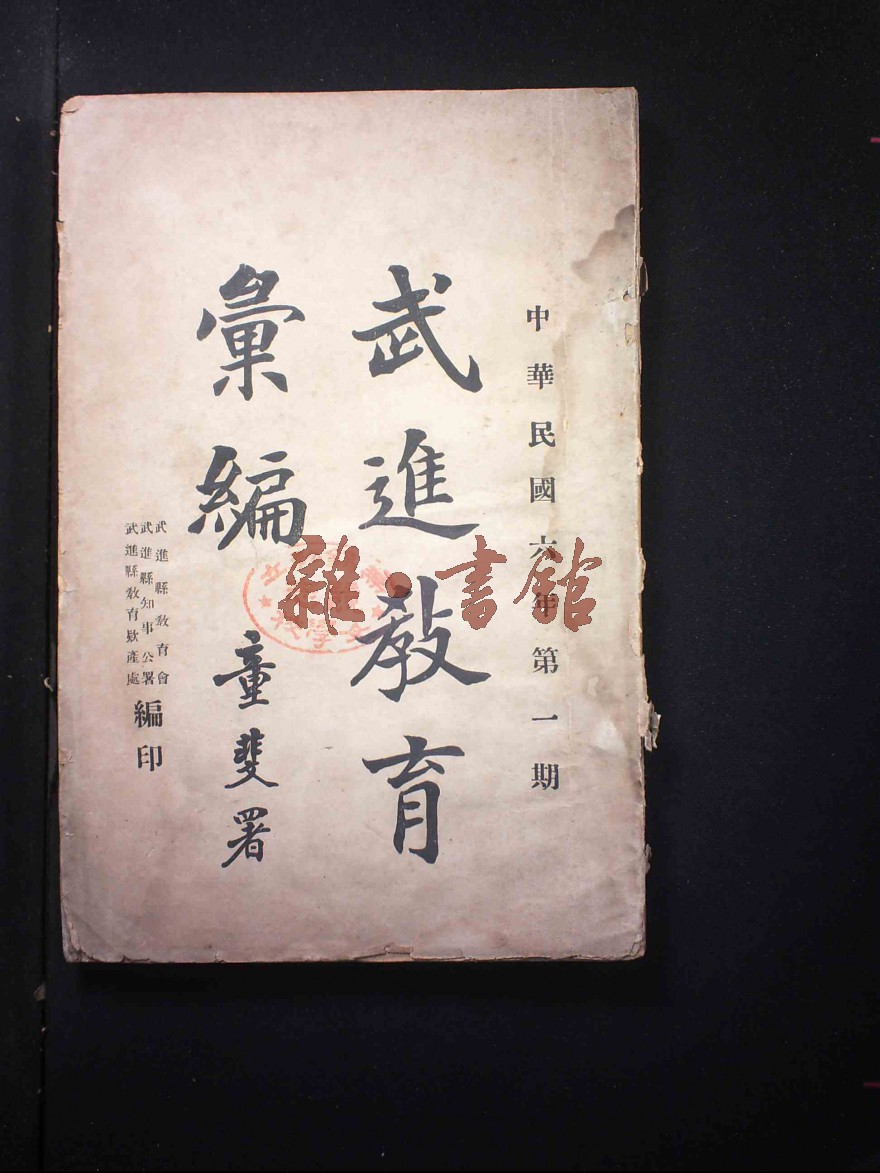 中華民國六年第一期
武進教育
彙編
童斐署
武進縣教育會
武進縣知事公署
武進縣教育欵產處
編印
雜·書館